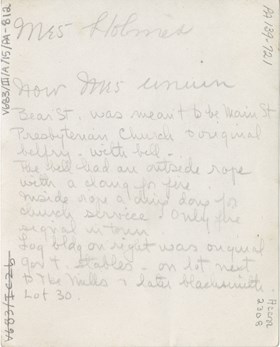 Mrs Holmes
Now Mrs Unwin
Bear St. was meant to be Main St
Presbyterian Church & original
belfry - with bell -
The bell had an outside rope
with a clang for fire
Inside rope a ding dong for
church service - Only fire
signal in town
Log bldg on right was original
gov't stables - on lot next
to The Mulles & later blacksmith
Lot 30.
V683/III/A/15/PA-812
PA 139-721
V683/I C 2 b
230B